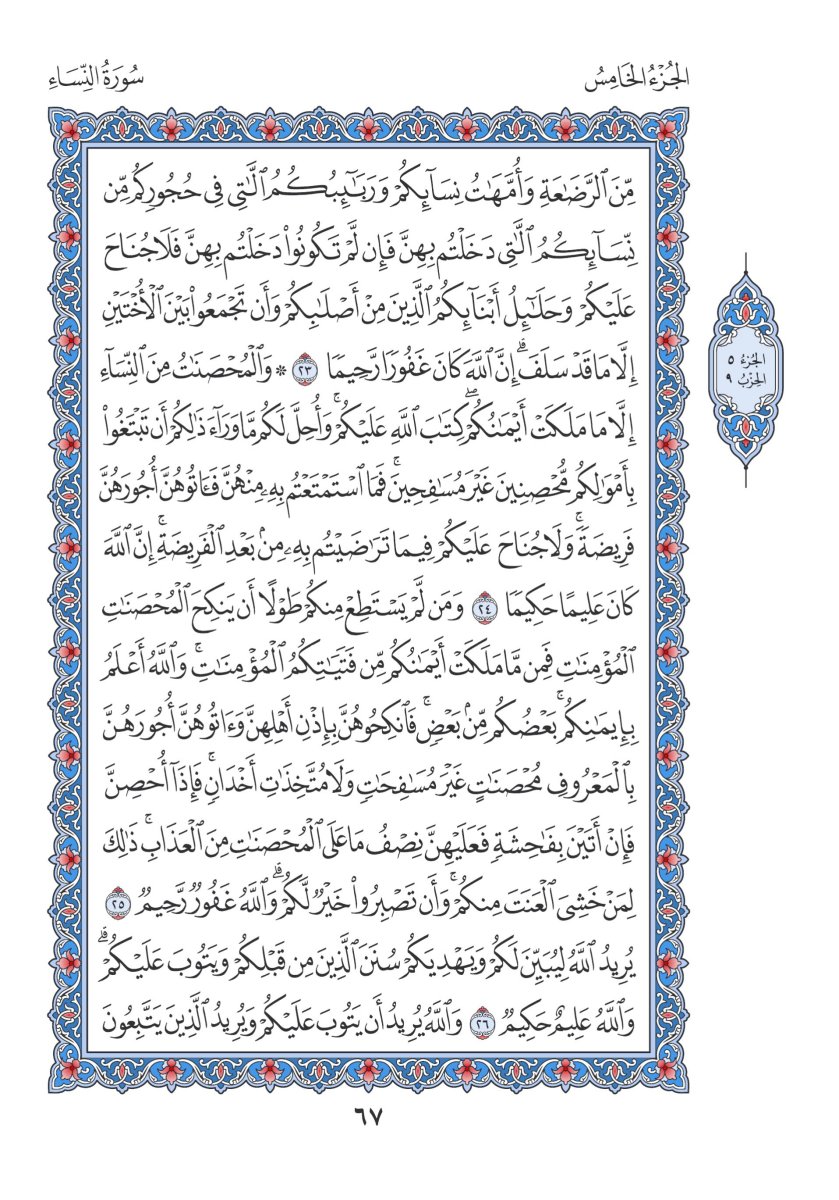 الجُزْءُ الخَامِسُ
سُورَةُ النِّسَاءِ
مِّنَ ٱلرَّضَٰعَةِ وَأُمَّهَٰتُ نِسَآئِكُمْ وَرَبَٰٓئِبُكُمُ ٱلَّٰتِي فِي حُجُورِكُم مِّن
نِّسَآئِكُمُ ٱلَّٰتِي دَخَلْتُم بِهِنَّ فَإِن لَّمْ تَكُونُوا۟ دَخَلْتُم بِهِنَّ فَلَا جُنَاحَ
عَلَيْكُمْ وَحَلَٰٓئِلُ أَبْنَآئِكُمُ ٱلَّذِينَ مِنْ أَصْلَٰبِكُمْ وَأَن تَجْمَعُوا۟ بَيْنَ ٱلْأُخْتَيْنِ
إِلَّا مَا قَدْ سَلَفَ ۗ إِنَّ ٱللَّهَ كَانَ غَفُورًا رَّحِيمًا ٢٣ ۞ وَٱلْمُحْصَنَٰتُ مِنَ ٱلنِّسَآءِ
إِلَّا مَا مَلَكَتْ أَيْمَٰنُكُمْ ۖ كِتَٰبَ ٱللَّهِ عَلَيْكُمْ ۚ وَأُحِلَّ لَكُم مَّا وَرَآءَ ذَٰلِكُمْ أَن تَبْتَغُوا۟
بِأَمْوَٰلِكُم مُّحْصِنِينَ غَيْرَ مُسَٰفِحِينَ ۚ فَمَا ٱسْتَمْتَعْتُم بِهِۦ مِنْهُنَّ فَـَٔاتُوهُنَّ أُجُورَهُنَّ
فَرِيضَةً ۚ وَلَا جُنَاحَ عَلَيْكُمْ فِيمَا تَرَٰضَيْتُم بِهِۦ مِنۢ بَعْدِ ٱلْفَرِيضَةِ ۚ إِنَّ ٱللَّهَ
كَانَ عَلِيمًا حَكِيمًا ٢٤ وَمَن لَّمْ يَسْتَطِعْ مِنكُمْ طَوْلًا أَن يَنكِحَ ٱلْمُحْصَنَٰتِ
ٱلْمُؤْمِنَٰتِ فَمِن مَّا مَلَكَتْ أَيْمَٰنُكُم مِّن فَتَيَٰتِكُمُ ٱلْمُؤْمِنَٰتِ ۚ وَٱللَّهُ أَعْلَمُ
بِإِيمَٰنِكُم ۚ بَعْضُكُم مِّنۢ بَعْضٍ ۚ فَٱنكِحُوهُنَّ بِإِذْنِ أَهْلِهِنَّ وَءَاتُوهُنَّ أُجُورَهُنَّ
بِٱلْمَعْرُوفِ مُحْصَنَٰتٍ غَيْرَ مُسَٰفِحَٰتٍ وَلَا مُتَّخِذَٰتِ أَخْدَانٍ ۚ فَإِذَآ أُحْصِنَّ
فَإِنْ أَتَيْنَ بِفَٰحِشَةٍ فَعَلَيْهِنَّ نِصْفُ مَا عَلَى ٱلْمُحْصَنَٰتِ مِنَ ٱلْعَذَابِ ۚ ذَٰلِكَ
لِمَنْ خَشِيَ ٱلْعَنَتَ مِنكُمْ ۚ وَأَن تَصْبِرُوا۟ خَيْرٌ لَّكُمْ ۗ وَٱللَّهُ غَفُورٌ رَّحِيمٌ ٢٥
يُرِيدُ ٱللَّهُ لِيُبَيِّنَ لَكُمْ وَيَهْدِيَكُمْ سُنَنَ ٱلَّذِينَ مِن قَبْلِكُمْ وَيَتُوبَ عَلَيْكُمْ ۗ
وَٱللَّهُ عَلِيمٌ حَكِيمٌ ٢٦ وَٱللَّهُ يُرِيدُ أَن يَتُوبَ عَلَيْكُمْ وَيُرِيدُ ٱلَّذِينَ يَتَّبِعُونَ
الجُزءُ ٥
الحِزْبُ ٩
٦٧